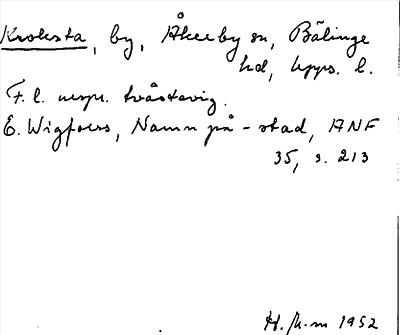 Krolsta, by, Åkerby sn, Bälinge
hd, Upps. l.
F. l. urspr. tvåstavig.
E. Wigforss, Namn på -stad, ANF
35, s. 213
H. 1952